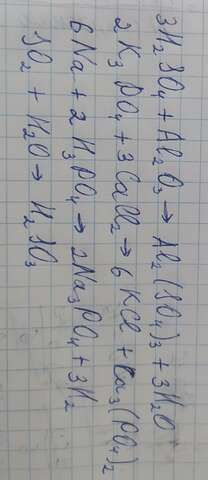 3H₂SO₄ + Al₂O₃ → Al₂(SO₄)₃ + 3H₂O
2K₃PO₄ + 3CaCl₂ → 6KCl + Ca₃(PO₄)₂
6Na + 2H₃PO₄ → 2Na₃PO₄ + 3H₂
SO₂ + H₂O → H₂SO₃